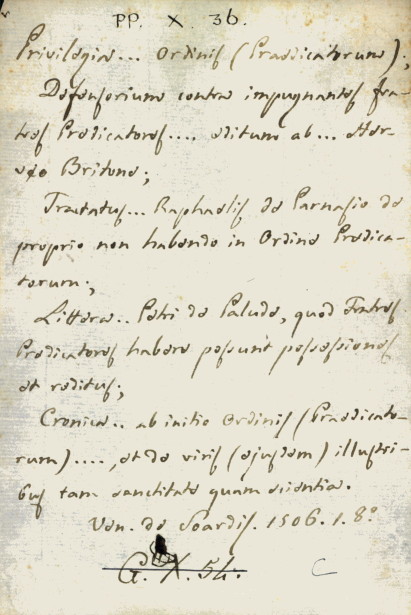 PP. X. 36.
Privilegia... Ordinis (Praedicatorum);
Defensorium contra impugnantes fra-
tres Predicatores.... editum ab... Her-
veo Britone;
Tractatus... Raphaelis de Parnasio de
proprio non habendo in Ordine Predica-
torum;
Littera.. Petri de Palude, quod Fratres
Predicatores habere possunt possessiones
et reditus;
Cronica.. ab initio Ordinis (Praedicato-
rum)...., et de viris (ejusdem) illustri-
bus tam sanctitate quam scientia.
Ven. de Soardis. 1506. 1. 8.º
G. X. 54.
C